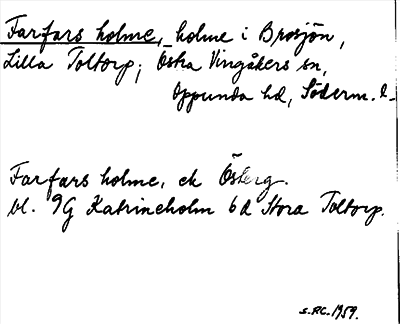 Farfars holme, holme i Brosjön,
Lilla Toltorp; Östra Vingåkers sn,
Oppunda hd, Söderm. l-
Farfars holme, ek Österg.
bl. 9G Katrineholm 6d Stora Toltorp.
1959.